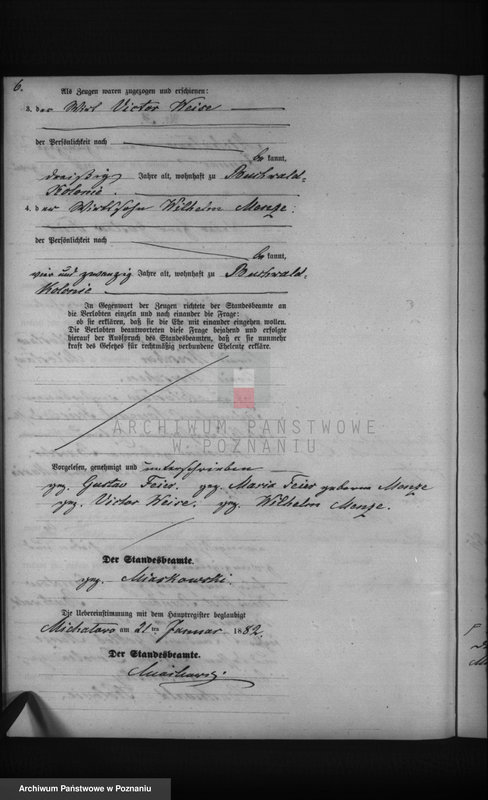 6.
Als Zeugen waren zugezogen und erschienen:
3. der Wirt Victor Weise
der Persönlichkeit nach
be kannt,
dreißig Jahre alt, wohnhaft zu Buchwald-
Kolonie.
4. der Wirtssohn Wilhelm Menze:
der Persönlichkeit nach
be kannt,
vier und zwanzig Jahre alt, wohnhaft zu Buchwald-
Kolonie
In Gegenwart der Zeugen richtete der Standesbeamte an
die Verlobten einzeln und nach einander die Frage:
ob sie erklären, daß sie die Ehe mit einander eingehen wollen.
Die Verlobten beantworteten diese Frage bejahend und erfolgte
hierauf der Ausspruch des Standesbeamten, daß er sie nunmehr
kraft des Gesetzes für rechtmäßig verbundene Eheleute erkläre.
ARCHIWUM PAŃSTWOWE
W POZNANIU
Vorgelesen, genehmigt und unterschrieben
gez. Gustav Feier. gez. Maria Feier geborene Menze
gez. Victor Weise. gez. Wilhelm Menze.
Der Standesbeamte.
gez. Miaskowski.
Die Uebereinstimmung mit dem Hauptregister beglaubigt
am 21 ten Januar 1882.
Der Standesbeamte.
Miaskowski
Archiwum Państwowe w Poznaniu